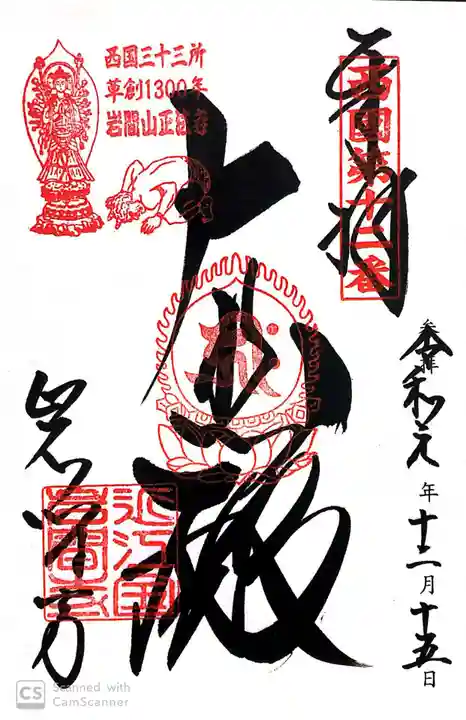 奉拝
西國第十二番
西国三十三所
草創1300年
岩間山正法寺
大悲殿
参拝
令和元年十二月十五日
近江国
岩間寺
CS Scanned with
CamScanner